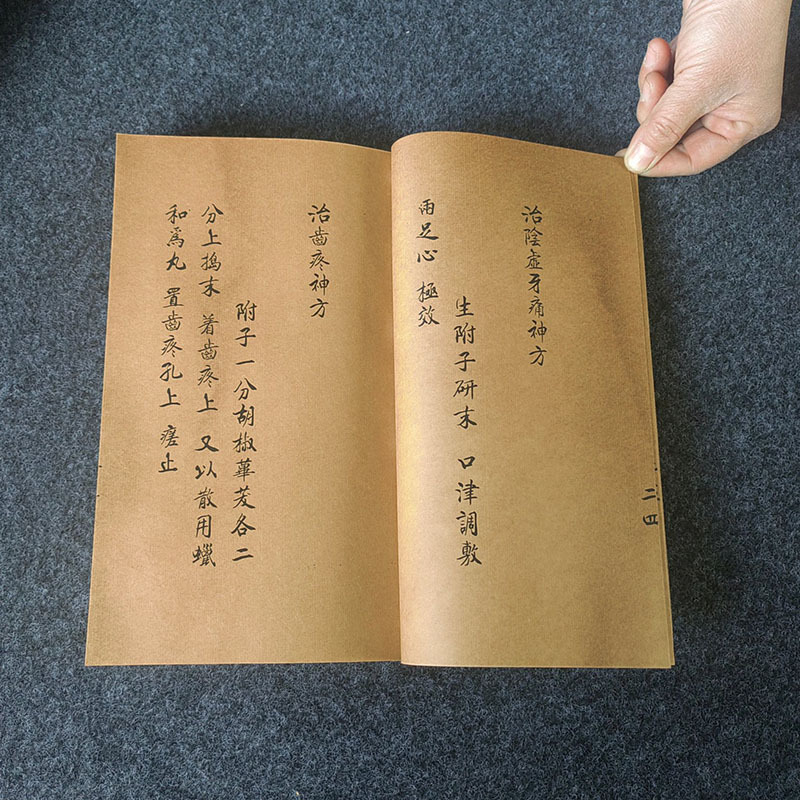 治陰虛牙痛神方
生附子研末 口津調敷
兩足心 極效
二四
治齒疼神方
附子一分胡椒蓽茇各二
分上搗末 着齒疼上 又以散用蠟
和爲丸 置齒疼孔上 瘥止